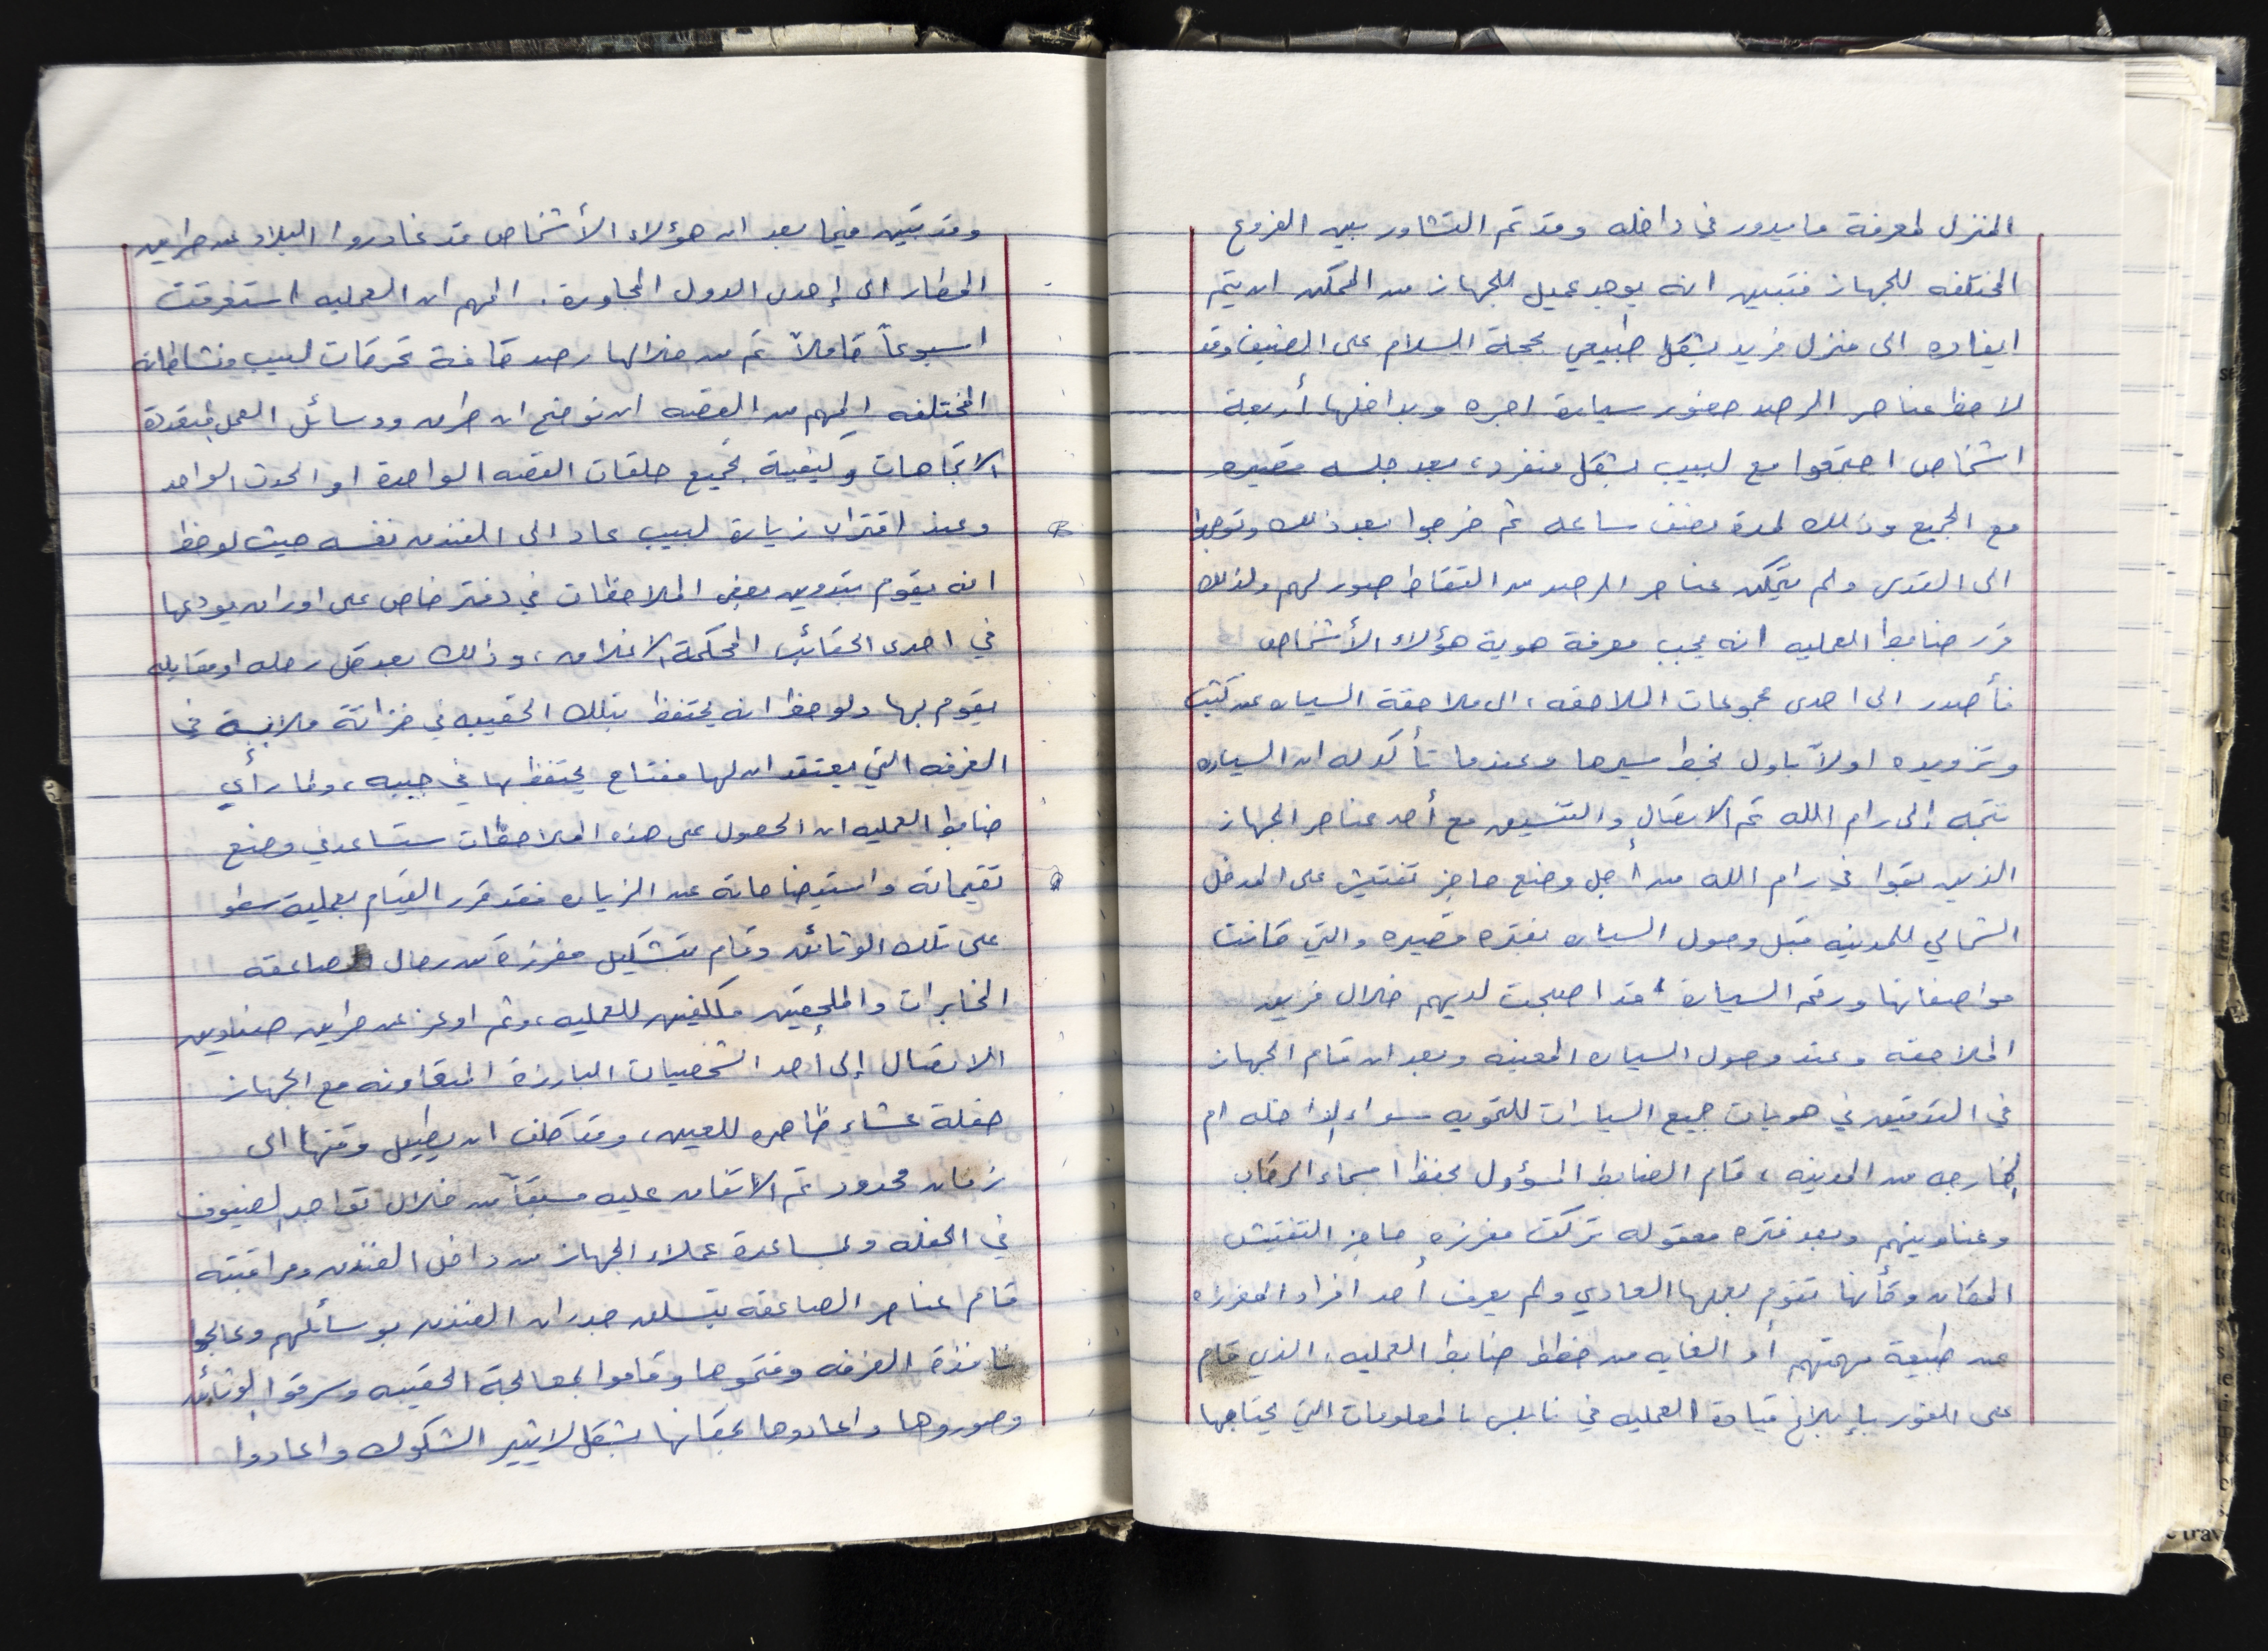 المنزل لمعرفة ما يدور في داخله وقد تم التشاور بين الفروع
المختلفه للجهاز فتبين انه يوجد عميل للجهاز من الممكن ان يتم
ايفاده الى منزل فريد بشكل طبيعي بحجة السلام على الضيف وقد
لاحظ عناصر الرصد حضور سيارة اجره وبداخلها أربعة
اشخاص اجتمعوا مع لبيب بشكل منفرد، بعد جلسه قصيره
مع الجميع وذلك لمدة نصف ساعه ثم خرجوا بعد ذلك وتوجهوا
الى القدس ولم يتمكن عناصر الرصد من التقاط صور لهم ولذلك
قرر ضابط العمليه انه يجب معرفة هوية هؤلاء الأشخاص
فأصدر الى احدى مجموعات الملاحقه، الى ملاحقة السياره عن كثب
وتزويده اولاً باول بخط سيرها وعندما تأكد له ان السياره
تتجه إلى رام الله تم الاتصال والتنسيق مع أحد عناصر الجهاز
الذين بقوا في رام الله من أجل وضع حاجز تفتيش على المدخل
الشمالي للمدينه قبل وصول السياره بفتره قصيره والتي كانت
مواصفاتها ورقم السيارة قد اصبحت لديهم خلال فريق
الملاحقه وعند وصول السياره المعينه وبعد ان قام الجهاز
في التدقيق في هويات جميع السيارات للتمويه سواء الداخله ام
الخارجه من المدينه، قام الضابط المسؤول بحفظ اسماء الركاب
وعناوينهم وبعد فتره معقوله تركت مفرزه حاجز التفتيش
المكان وكأنها تقوم بعملها العادي ولم يعرف أحد افراد المفرزه
عن طبيعة مهمتهم أو الغايه من خطط ضابط العمليه، الذي قام
على الفور بإبلاغ قيادة العمليه في نابلس بالمعلومات التي يحتاجها
وقد تبين فيما بعد ان هؤلاء الأشخاص قد غادروا البلاد عن طريق
المطار الى إحدى الدول المجاورة. المهم ان العمليه استغرقت
اسبوعاً كاملاً تم من خلالها رصد كافة تحركات لبيب ونشاطاته
المختلفه المهم من القصه ان نوضح ان طرق ووسائل العمل متعددة
الاتجاهات وكيفية تجميع حلقات القصه الواحدة او الحدث الواحد
وعند اقتراب زيارة لبيب عاد الى الفندق نفسه حيث لوحظ
انه يقوم بتدوين بعض الملاحظات في دفتر خاص على اوراق يودعها
في احدى الحقائب المحكمة الاغلاق، وذلك بعد كل رحله او مقابله
يقوم بها ولوحظ انه يحتفظ بتلك الحقيبه في خزانة ملابسه في
الغرفه التي يعتقد ان لها مفتاح يحتفظ بها في جيبه، ولما رأى
ضابط العمليه ان الحصول على هذه الملاحظات ستساعد في وضع
تقيماته واستيضاحاته عن الزياره فقد قرر القيام بعملية سطو
على تلك الوثائق وقام بتشكيل مفرزة من رجال الصاعقه
المخابرات والملحقين مكلفين للعمليه، وثم اوعز عن طريق
الاتصال إلى أحد الشخصيات البارزة المتعاونه مع الجهاز
حفلة عشاء ظاهره للعين، وقد كلف ان يطيل وقتها الى
زمان محدود تم الاتفاق عليه مسبقاً من خلال تواجد الضيوف
في الحفله وبمساعدة عملاء الجهاز من داخل الفندق ومراقبته
قام عناصر الصاعقه بتسلق جدران الفندق بوسائلهم وعالجوا
نافذة الغرفه وفتحوها وقاموا بمعالجة الحقيبه وسرقوا الوثائق
وصوروها واعادوها بمكانها بشكل لا يثير الشكوك واعادوا